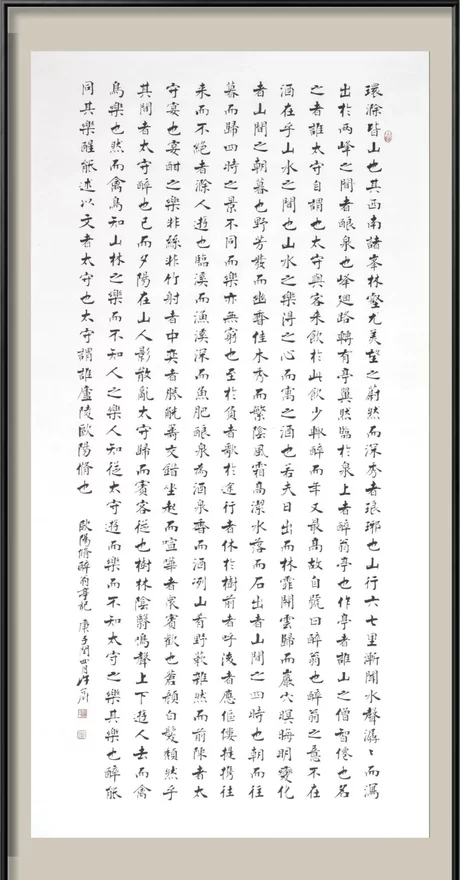 環滁皆山也其西南諸峯林壑尤美望之蔚然而深秀者琅琊也山行六七里漸聞水聲潺〻而瀉
出於兩峰之間者釀泉也峰廻路轉有亭翼然臨於泉上者醉翁亭也作亭者誰山之僧智僊也名
之者誰太守自謂也太守與客来飲於此飲少輒醉而年又最高故自號曰醉翁也醉翁之意不在
酒在乎山水之間也山水之樂得之心而寓之酒也若夫日出而林霏開雲歸而巖穴暝晦明變化
者山間之朝暮也野芳發而幽香佳木秀而繁陰風霜高潔水落而石出者山間之四時也朝而往
暮而歸四時之景不同而樂亦無窮也至於負者歌於途行者休於樹前者呼後者應傴僂提攜往
来而不絕者滁人遊也臨溪而漁溪深而魚肥釀泉為酒泉香而酒洌山肴野蔌雜然而前陳者太
守宴也宴酣之樂非絲非竹射者中奕者勝觥籌交錯坐起而喧嘩者衆賓歡也蒼顏白髮頹然乎
其間者太守醉也已而夕陽在山人影散亂太守歸而賓客從也樹林陰翳鳴聲上下遊人去而禽
鳥樂也然而禽鳥知山林之樂而不知人之樂人知從太守遊而樂而不知太守之樂其樂也醉能
同其樂醒能述以文者太守也太守謂誰廬陵歐陽脩也
歐陽脩醉翁亭記 庚子閏四月